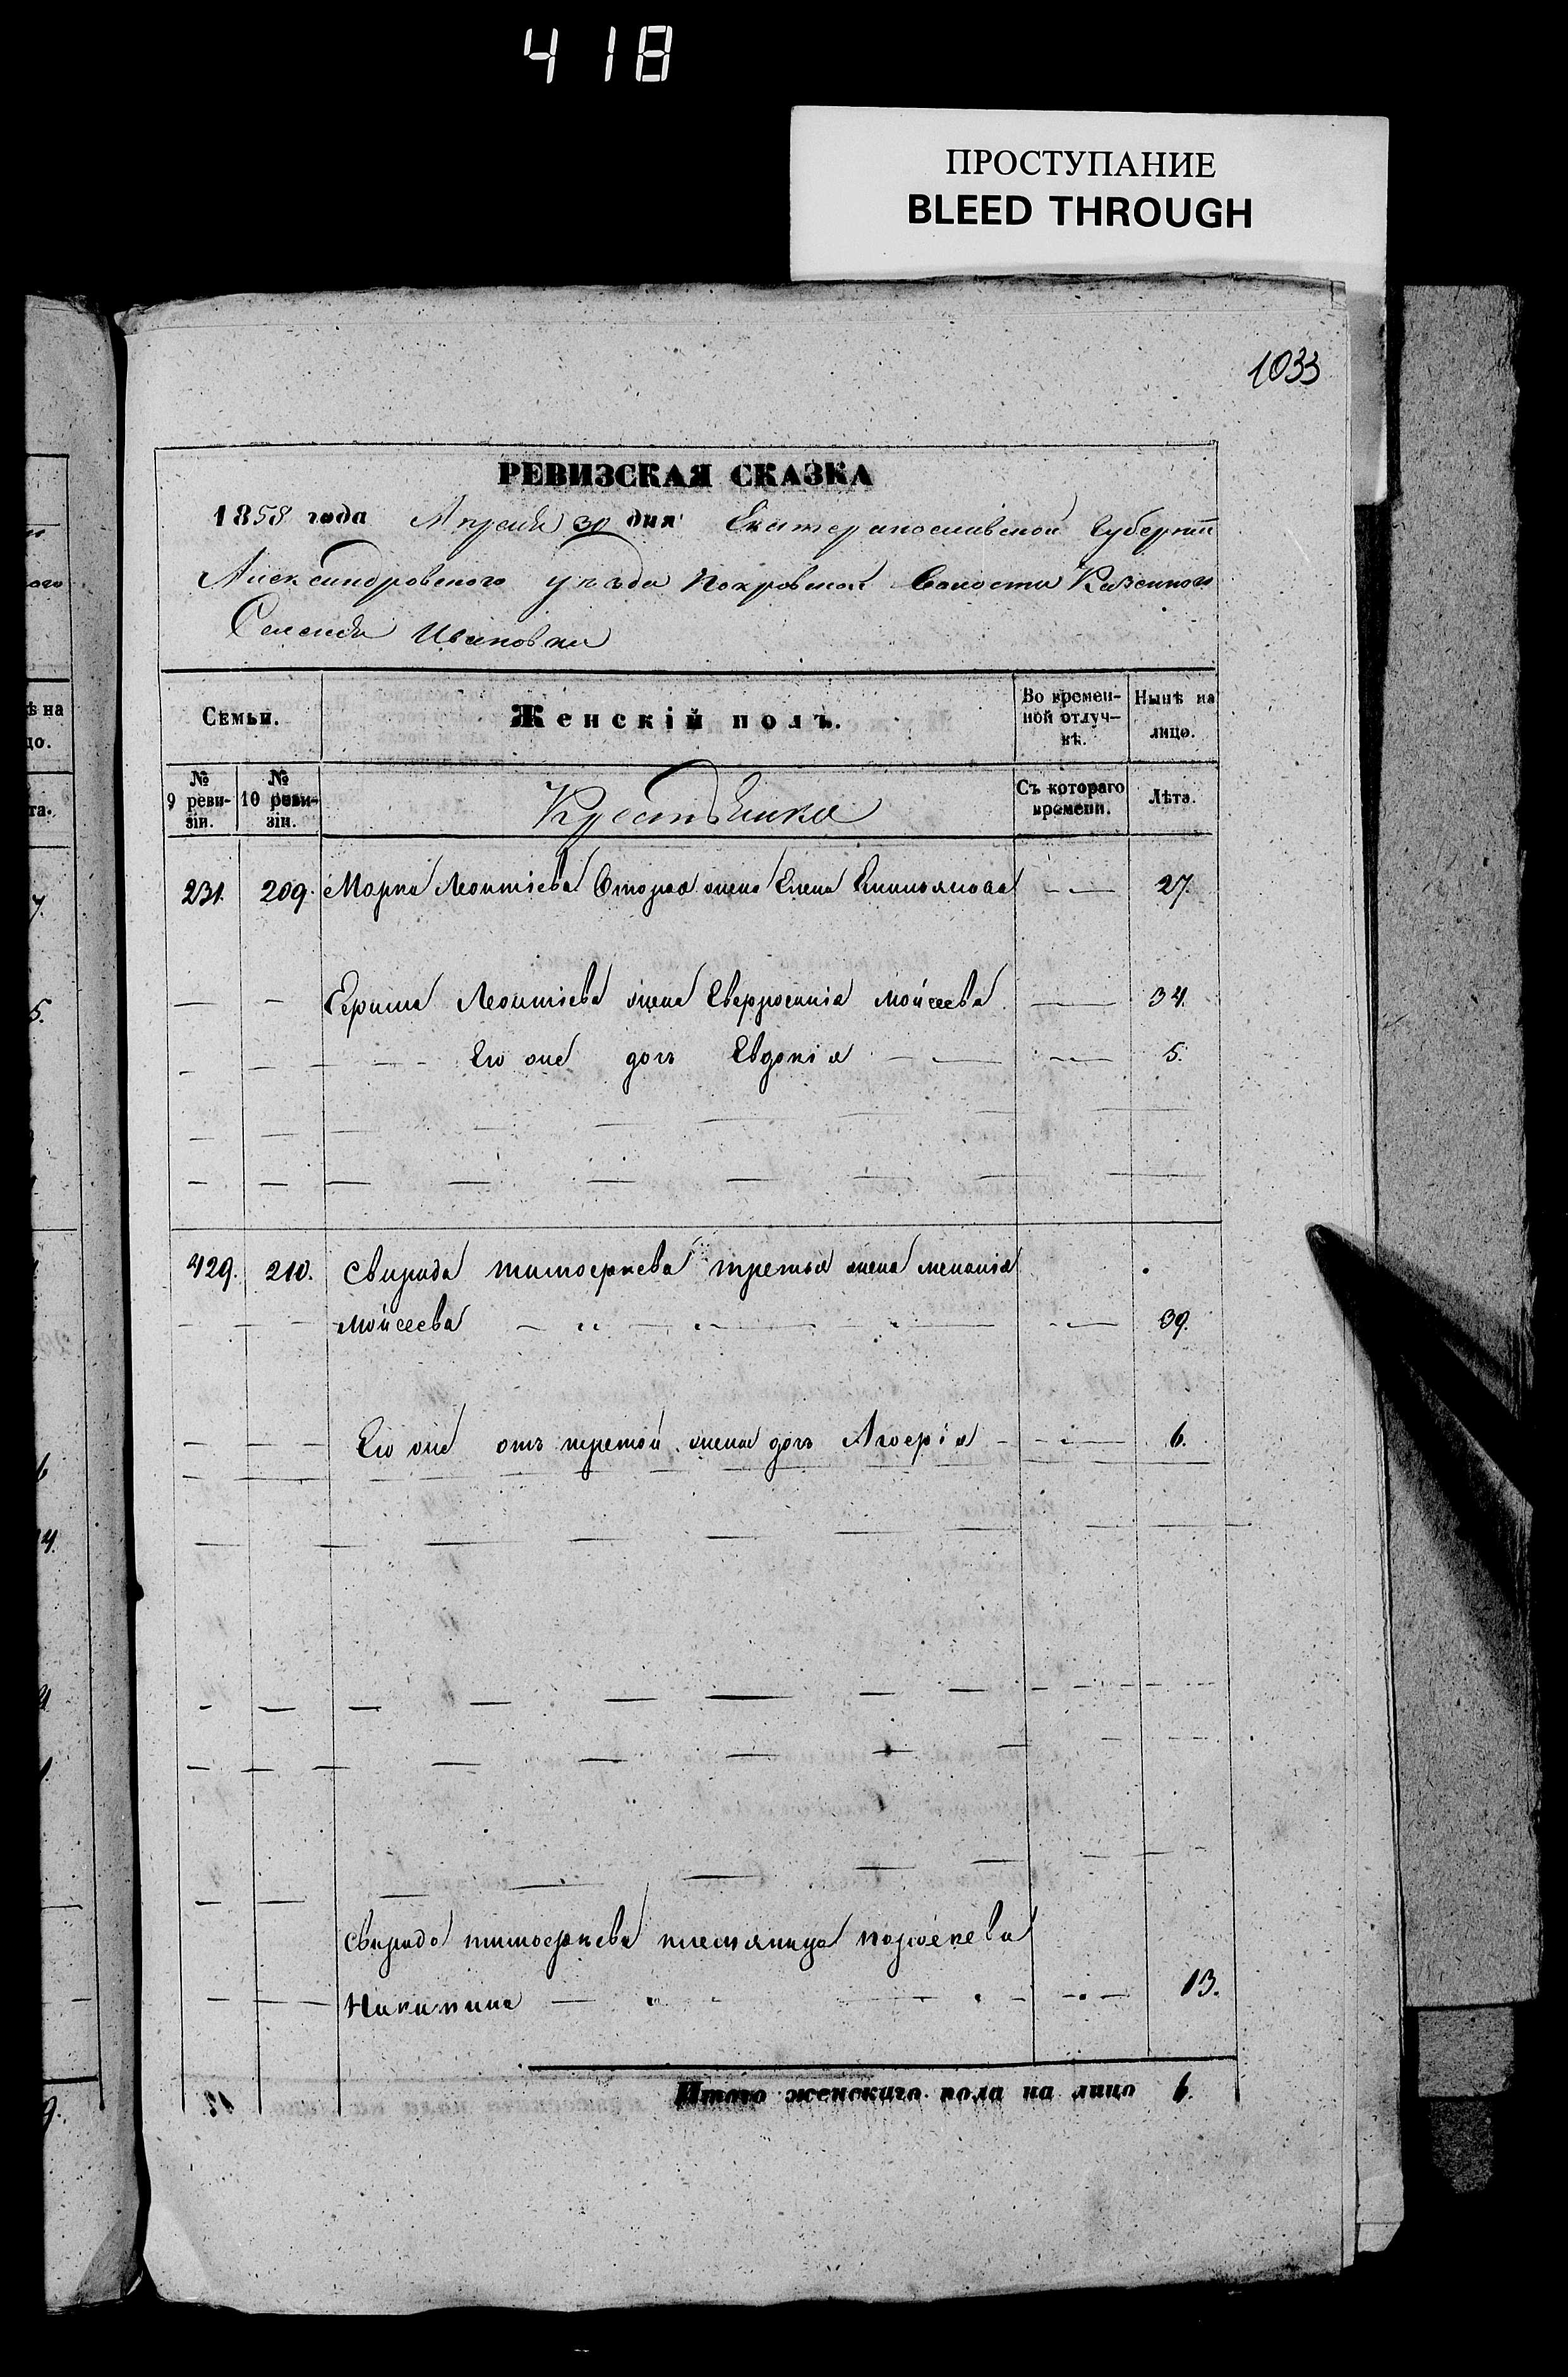 418
ПРОСТУПАНИЕ
BLEED THROUGH
1033
РЕВИЗСКАЯ СКАЗКА
1858 года Апреля 30 дня Екатеринославской Губернии
Александровского уезда Покровской Волости Казенного
Селенія Ивановки
Семьи.
Женскій полъ.
Во времен-
ной отлуч-
кѣ.
Нынѣ на
лицо.
№
9 реви-
зіи.
№
10 реви-
зіи.
Крестьянка
Съ котораго
времени.
Лѣта.
231. 209. Марка Леонтіева Вторая жена Елена Емильянова 27.
Леонтіева жена Евфросинія Мойсеева 34.
Его же дочь Евдокія 5.
429. 210. Свирида Тимоефѣева третья жена Меланія
Мойсеева 39.
Его же отъ третой жены дочь 6.
Свирида племяница
Никитина 13.
Итого женскаго пола на лицо 6.